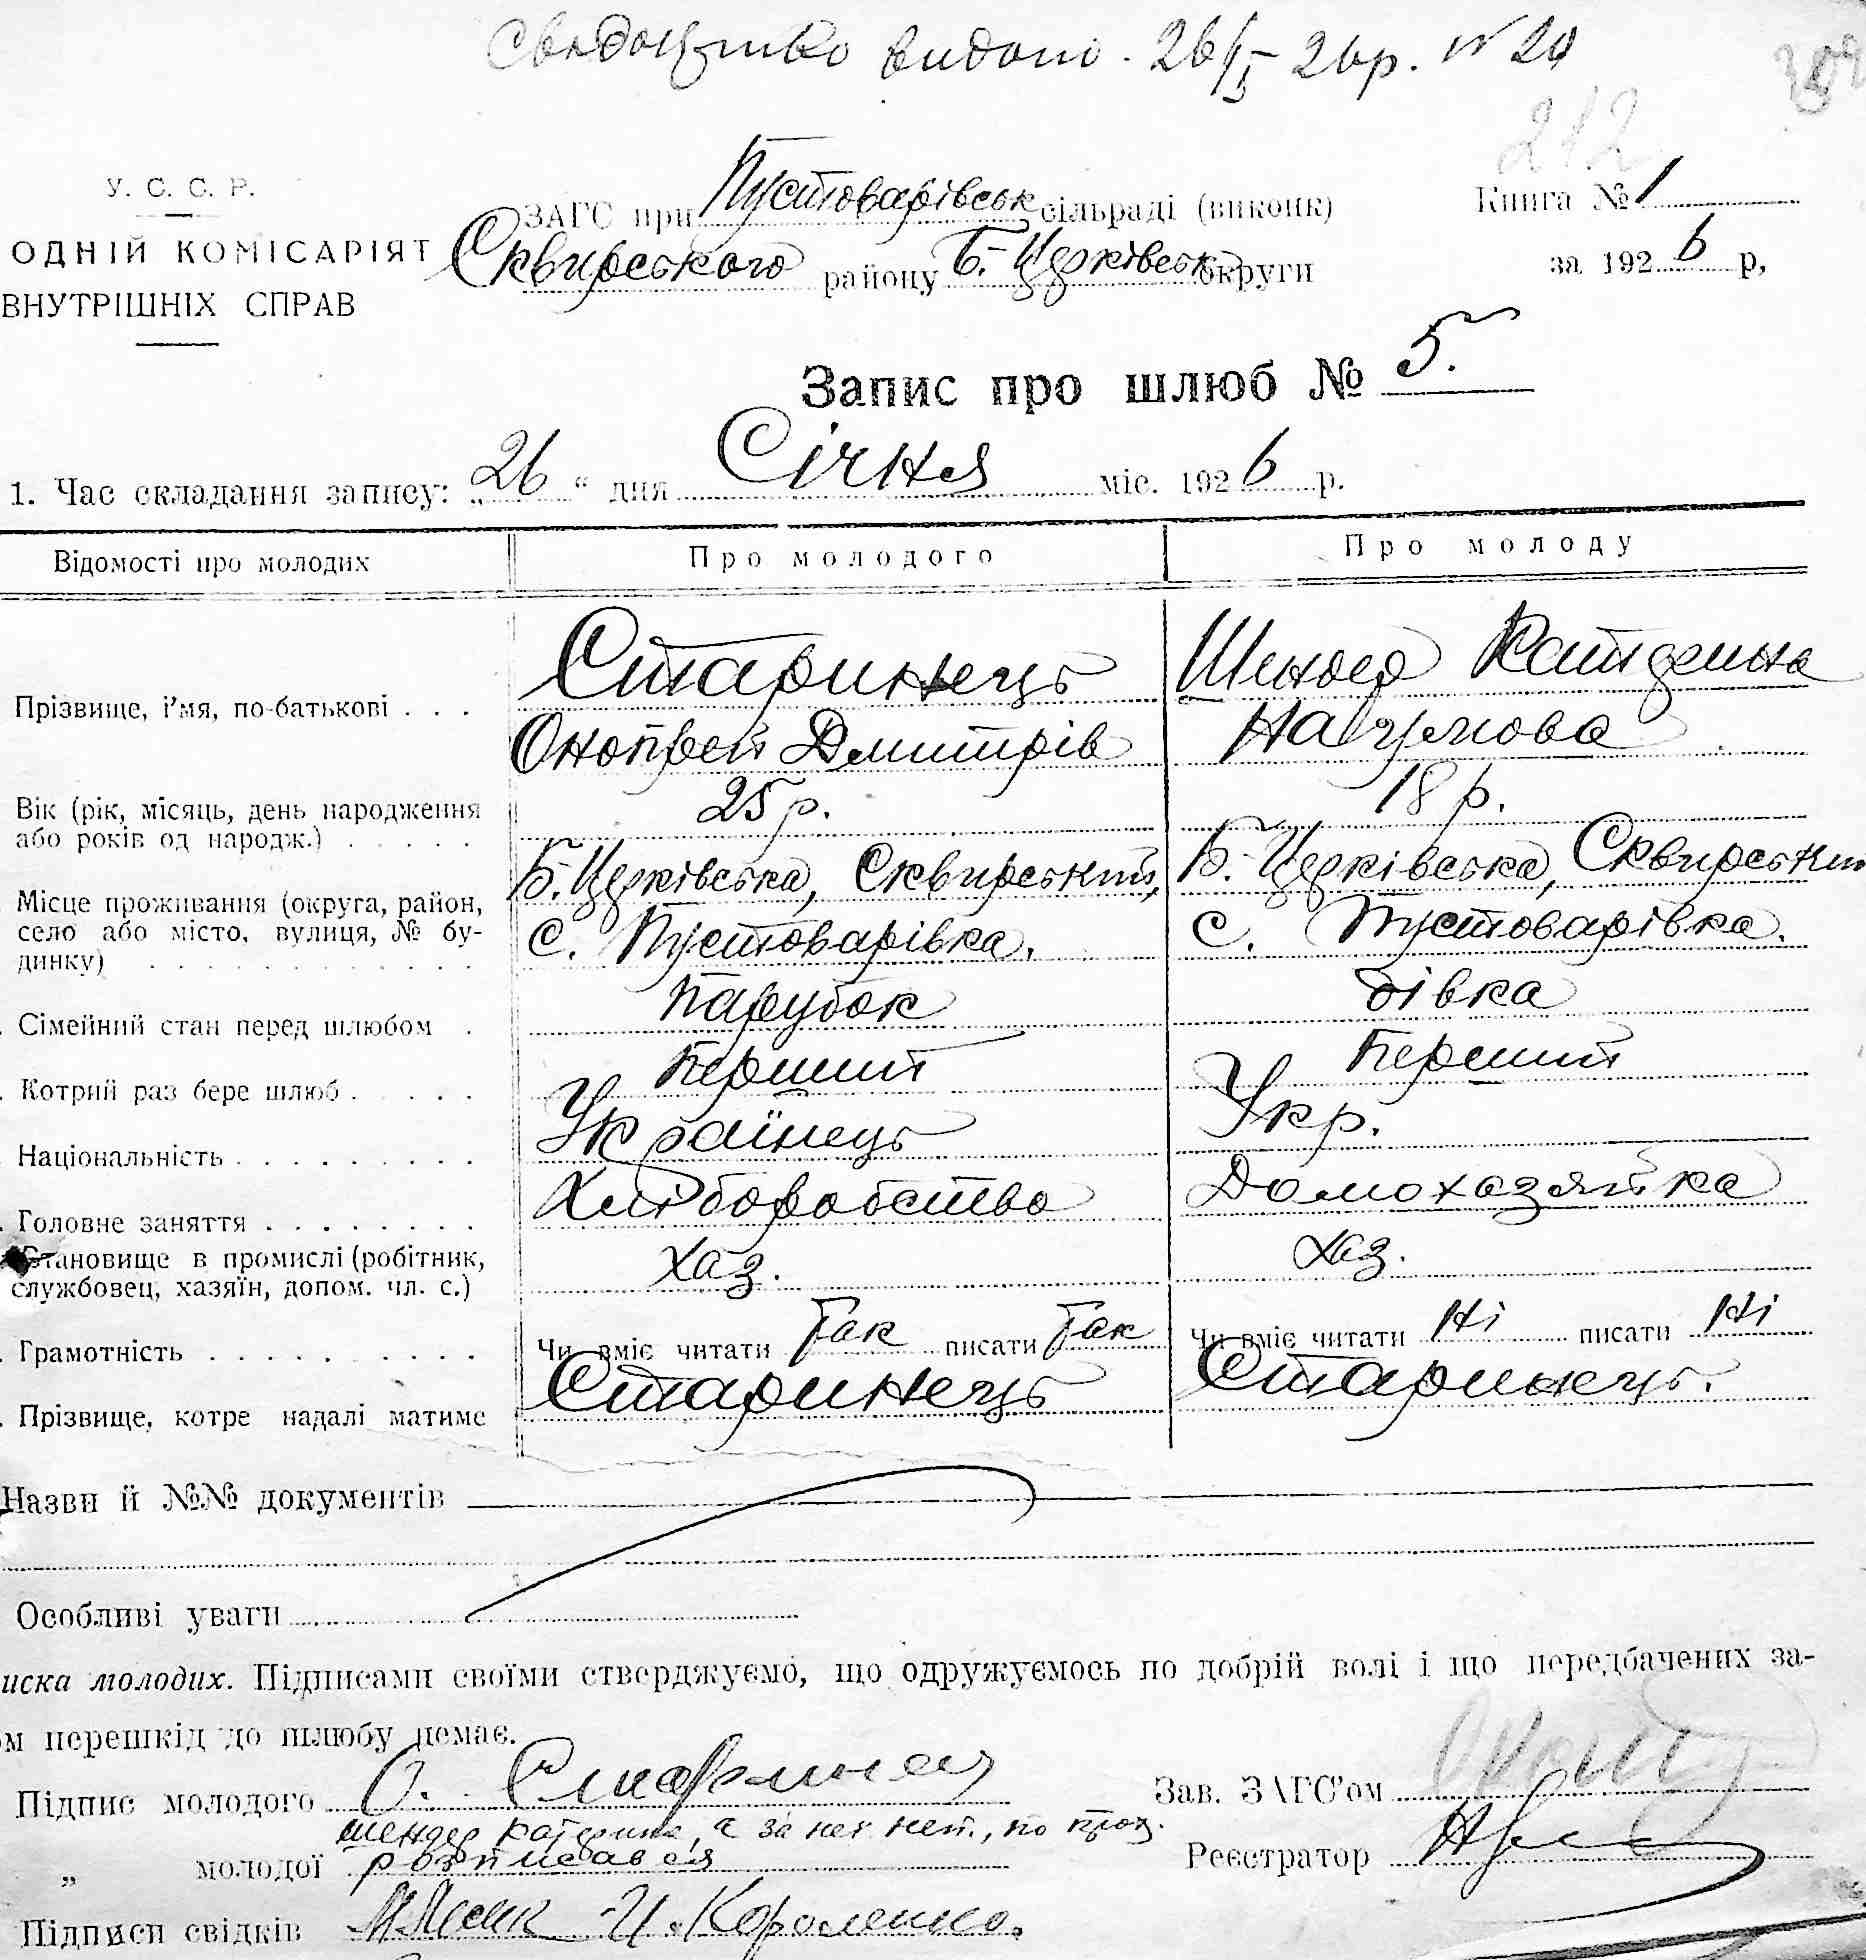 Свідоцтво видано. 26/I 26р. № 20
212
У. С. С. Р.
ЗАГС при Пустоварівськ сільраді (виконк) Книга № 1
ОДНІЙ КОМІСАРІЯТ Сквирського району Б.-Церківськ округи за 1926 р,
ВНУТРІШНІХ СПРАВ
Запис про шлюб № 5.
1. Час складання запису: „26“ дня Січня міс. 1926 р.
Відомості про молодих Про молодого Про молоду
Прізвище, і'мя, по-батькові . . . Старинець Шендер Катерина
Онопрей Дмитрів Наумова
Вік (рік, місяць, день народження
або років од народж.) . . . . . 25 р. 18 р.
Місце проживання (округа, район, Б.-Церківська, Сквирський, Б.-Церківська, Сквирський
село або місто, вулиця, № бу- с. Пустоварівка. с. Пустоварівка.
динку) . . . . . . . . . . . .
. Сімейний стан перед шлюбом . парубок дівка
. Котрий раз бере шлюб . . . . . Перший Перший
. Національність . . . . . . . . . Українець Укр.
. Головне заняття . . . . . . . . Хліборобство Домохазяйка
Становище в промислі (робітник,
службовец, хазяїн, допом. чл. с.) хаз. хаз.
. Грамотність . . . . . . . . . . Чи вміє читати Так писати Так Чи вміє читати Ні писати Ні
. Прізвище, котре надалі матиме Старинець Старинець.
Назви й №№ документів
Особливі уваги
иска молодих. Підписами своїми стверджуємо, що одружуємось по добрій волі і що передбачених за-
ом перешкід до шлюбу немає.
Підпис молодого О. Старинец Зав. ЗАГС'ом
шендер катерина, а за нек неп., по прох.
„ молодої розписався Реєстратор
Підписи свідків И. Короленко.